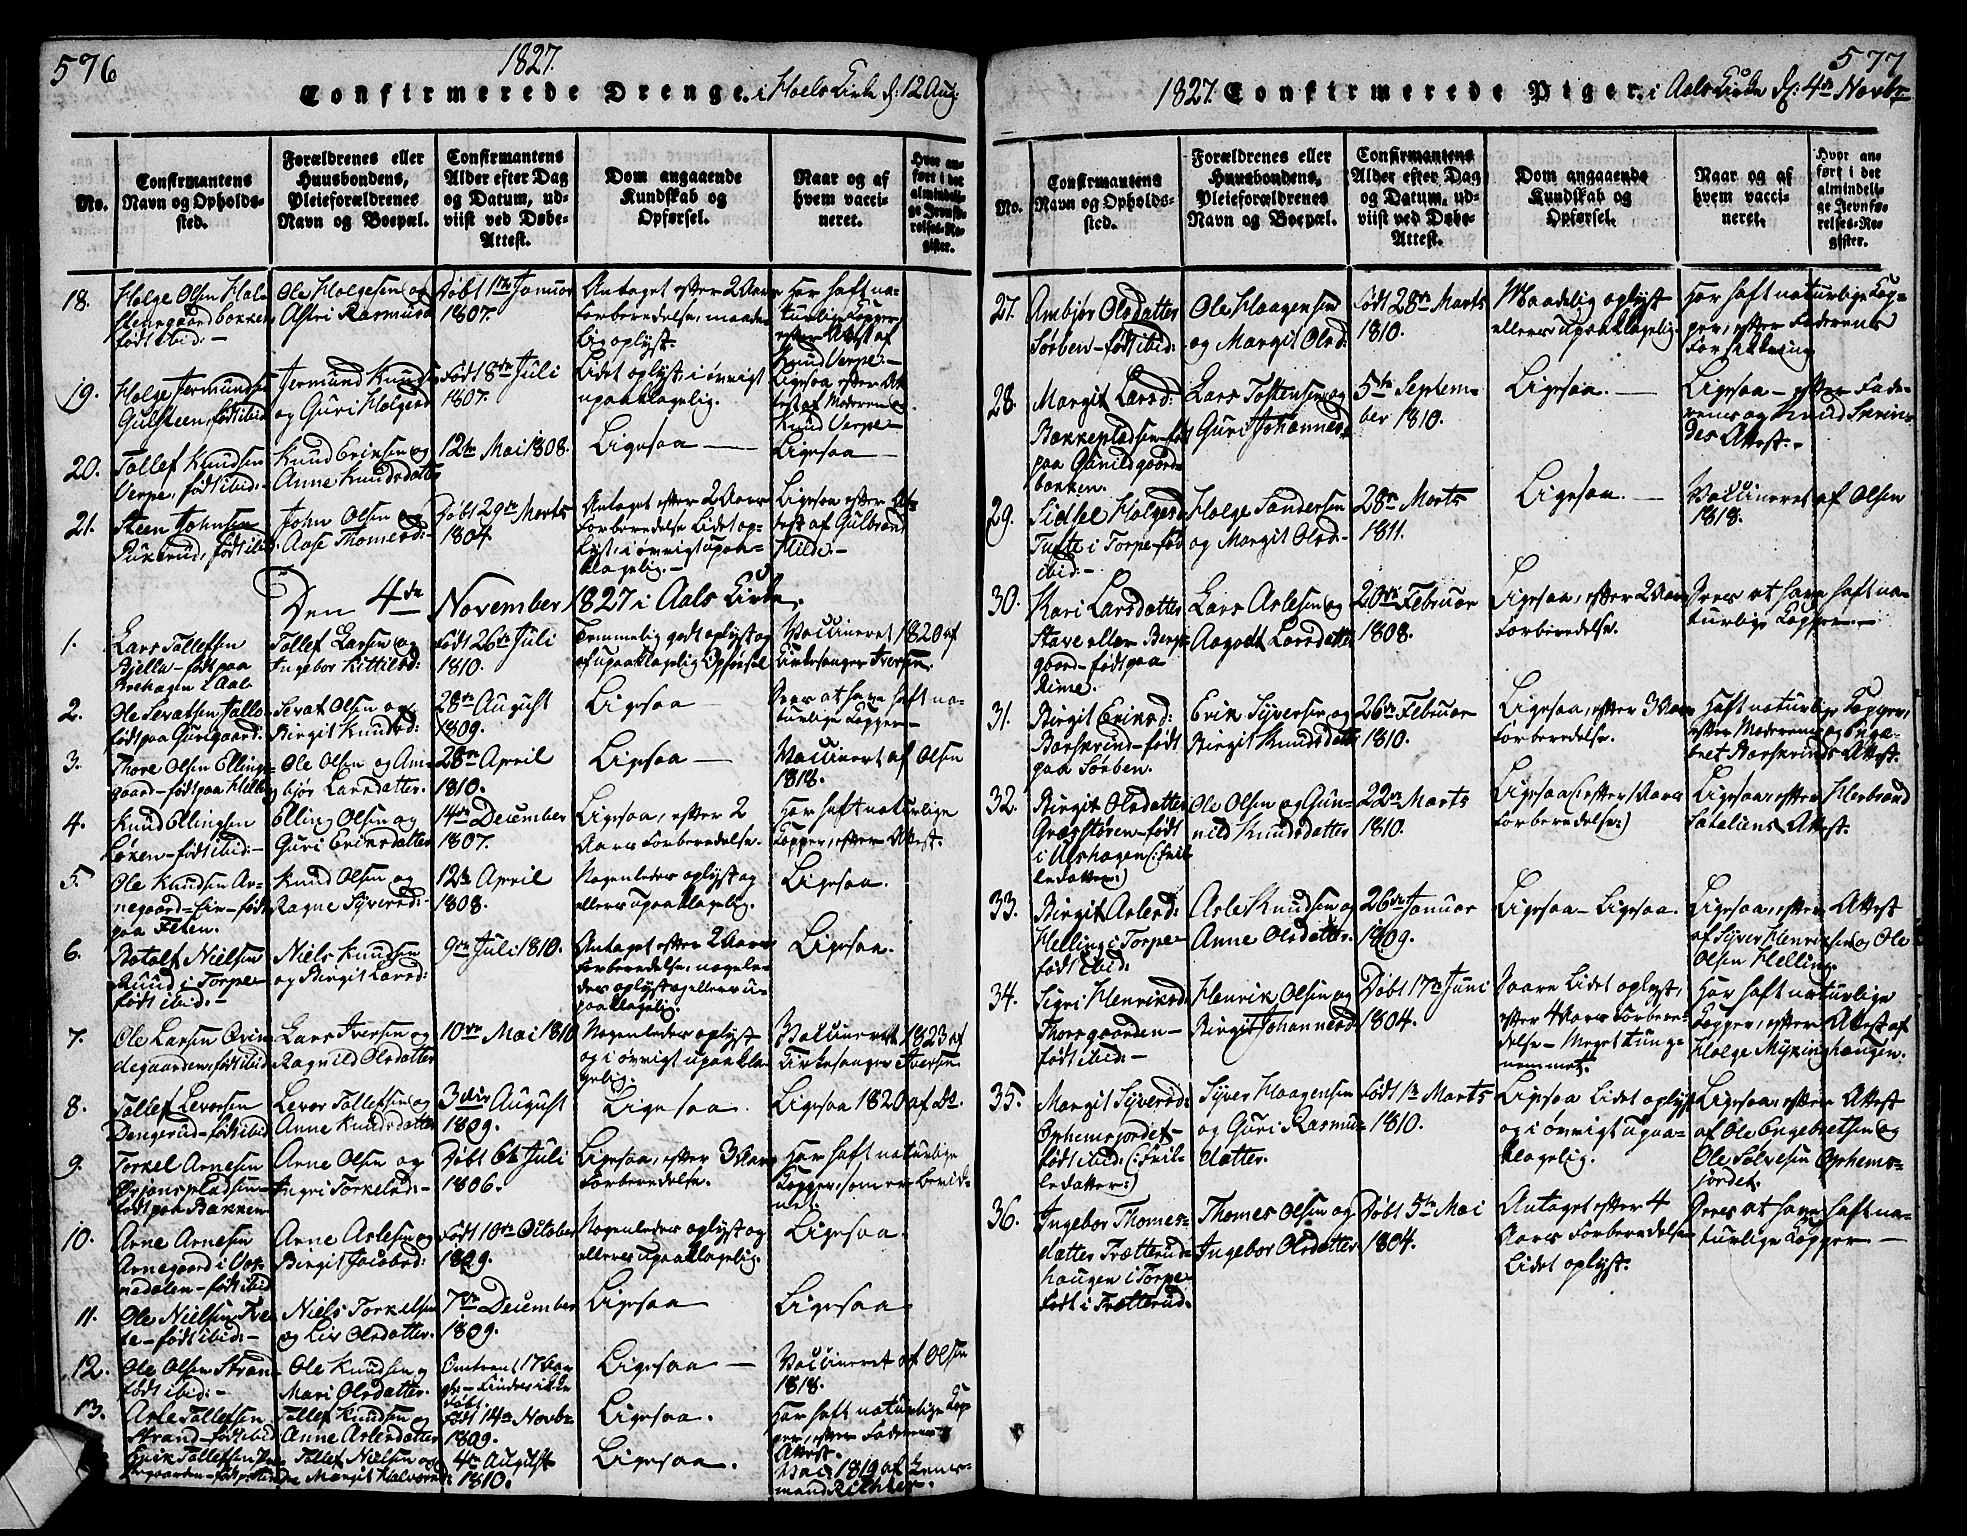 576
1827.
Confirmerede Drenge. i Hoels Kirke d: 12 Aug:
No.
Confirmantens
Navn og Opholds-
sted.
Forældrenes eller
Huusbondens,
Pleieforældrenes
Navn og Boepæl.
Confirmantens
Alder efter Dag
og Datum, ud-
viist ved Døbe-
Attest.
Dom angaaende
Kundskab og
Opførsel.
Naar og af
hvem vacci-
neret.
Hvor an-
ført i det
almindeli-
ge Jevnfø-
relses-Re-
gister.
18.
Holge Olsen
født ibid:-
Ole Holgesen og
Astri Rasmusd
Døbt 1ste Januar
1807.
Antaget efter 2 Aars
Forberedelse, maade-
lig oplyst.
Har haft na-
turlige Kopper,
efter Attest af
Knud Verpe:-
19.
Holge Jermundsen
Gulsteen, født ibid
Jermund Knudsen
og Guri Holgesd
Født 8de Juli
1807.
Lidet oplyst, i øvrigt
upaaklagelig.
Ligesaa efter At-
test af Moderen og
Knud Verpe-
20.
Tollef Knudsen
Verpe, født ibid:-
Knud Eriksen og
Anne Knudsdatter
12te Mai 1808.
Ligesaa
Ligesaa
21.
Steen Johnsen
født ibid
John Olsen og
Aase Thomesd:
Døbt 29de Marts
1804
Antaget efter 2 Aars
Forberedelse Lidet op-
lyst, i øvrigt upaa-
klagelig.-
Ligesaa efter At-
test af Gulbrand
Hilde.-
Den 4de November 1827 i Aals Kirke.
1.
Lars Tollefsen
Bjella-født paa
Brehagen i Aal.
Tollef Larsen og
Ingebor Kittilsd:
Født 26de Juli
1810.
Temmelig godt oplyst og
af upaaklagelig Opførsel
Vaccineret 1820 af
Kirkesanger Iversen.
2.
Ole Sevatsen
født paa Gurigaard:
Sevat Olsen og
Birgit Knudsd:
28de August
1809.
Ligesaa
at have haft na-
turlige Kopper-
3.
Thore Olsen Ellings-
gaard-født paa Helling
Ole Olsen og Am-
bjør Larsdatter.
28de April
1810.
Ligesaa
Vaccineret af Olsen
1818.
4.
Knud Ellingsen
Løken-født ibid:-
Elling Olsen og
Guri Eriksdatter
14de December
1807.
Ligesaa, efter 2
Aars Forberedelse.
Har haft naturlige
Kopper, efter Attest.
5.
Ole Knudsen Ar-
negaard-
paa Feten.
Knud Olsen og
Ragne Syversd:
12te April
1808.
Nogenledes oplyst og
ellers upaaklagelig.
Ligesaa.
6.
Botolf Nielsen
Ruud i Torpe-
født ibid:-
Niels Knudsen
og Birgit Larsd:
9de Juli 1810.
Antaget efter 2 Aars
Forberedelse, nogele-
des oplyst og ellers u-
paaklagelig.
Ligesaa.
7.
Ole Larsen Qvin-
degaarden, født ibid
Lars Iversen og
Ragnild Olsdatter
10de Mai 1810
Nogenledes oplyst
og i øvrigt upaakla-
gelig.
Vaccineret 1823 af
Kirkesanger Iversen
8.
Tollef Levorsen
Dengerud-født ibid
Levor Tollefsen og
Anne Knudsdatter
3die August
1809.
Ligesaa.
Ligesaa 1820 af Do.
9.
Torkel Arnesen
født paa Bakken
Arne Olsen og
Ingri Torkelsd:-
Døbt 6te Juli
1806.
Ligesaa, efter 3 Aars
Forberedelse.
Har haft naturlige
Kopper, som er bevid-
net.
10.
Arne Arnesen
Arnegaard i Vots-
nedalen-født ibid
Arne Aslesen og
Birgit Jacobsd:
Født 10de October
1809.
Nogenledes oplyst og
ellers upaaklagelig.
Ligesaa.
11.
Ole Nielsen Tve-
te-født ibid:-
Niels Torkelsen
og Liv Olsdatter.
7de December
1809.
Ligesaa
Ligesaa
12.
Ole Olsen Stran-
født ibid:-
Ole Knudsen og
Mari Olsdatter.
Omtrent 17 Aar
gl:- Findes ikke
døbt.
Ligesaa
Vaccineret af Olsen
1818.
13.
Asle Tollefsen
Strand-født ibid
Tollef Knudsen og
Anne Aslesdatter
Født 14de Novbr
1809.
Ligesaa.
Har haft naturlige Kop-
per, efter Faderens
Attest.
Erik Tollefsen
Tollef Nielsen og
Margit Halvorsd:
4de August
1810.
Ligesaa.
1819 af Lens-
mand Richter.
577
1827. Confirmerede Piger. i Aals Kirke d: 4de Novbr
No.
Confirmantens
Navn og Opholds-
sted.
Forældrenes eller
Huusbondens,
Pleieforældrenes
Navn og Boepæl.
Confirmantens
Alder efter Dag
og Datum, ud-
viist ved Døbe-
Attest.
Dom angaaende
Kundskab og
Opførsel.
Naar og af
hvem vacci-
neret.
Hvor an-
ført i det
almindeli-
ge Jevnfø-
relses-Re-
gister.
27.
Ambjør Olsdatter
Sørben-født ibid:
Ole Haagensen
og Margit Olsd:
Født 28de Marts
1810.
Maadelig oplyst
ellers upaaklagelig.
Har haft naturlige Kop-
per, efter Faderens
Forsikkring
28.
Margit Larsd:
Bakkepladsen-født
paa Gunildgaard-
bakken.
Lars Tostensen og
Guri Johannesd
5te Septem-
ber 1810.
Ligesaa.
Ligesaa-efter Fade-
rens og Knud Skrin-
des Attest.-
29.
Sidsel Holgesd
Tufte i Torpe-født
ibid:-
Holge Sandersen
og Margit Olsd-
28de Marts
1811.
Ligesaa.
Vaccineret af Olsen
1818.
30.
Kari Larsdatter
Stave eller Berg-
gaard-født paa
Rime.
Lars Aslesen og
Aagodt Larsdatter
20de Februar
1808.
Ligesaa, efter 2 Aars
Forberedelse.
at have haft na-
turlige Kopper.-
31.
Birgit Eriksd:
Barskrind-født
paa Sørben.
Erik Syversen og
Birgit Knudsdatter
26de Februar
1810.
Ligesaa, efter 3 Aars
Forberedelse.
Haft naturlige Kopper,
efter Moderens og Enge-
bret Barskrinds Attest.
32.
Birgit Olsdatter
født
i Ulshagen (:Fril-
ledatter:)
Ole Olsen og Gun-
nild Knudsdatter
22de Marts
1810.
Ligesaa (:efter 1 Aars
Forberedelse:)
Ligesaa, efter Herbrand
Sataliens Attest.
33.
Birgit Aslesd:
Helling i Torpe-
født ibid:
Asle Knudsen og
Anne Olsdatter.
26de Januar
1809.
Ligesaa- Ligesaa.
Ligesaa, efter Attest
af Syver Henriksen og Ole
Olsen Helling.
34.
Sigri Henriksd:
Thorsgaarden-
født ibid:-
Henrik Olsen og
Birgit Johannesd
Døbt 17de Juni
1804.
Saare Lidet oplyst,
efter 4 Aars Forbere-
delse- Meget tunge
nemmet.
Har haft naturlige
Kopper, efter Attest af
Holge Mykinghaugen.
35.
Margit Syversd:
Ophemsjordet-
født ibid.(:Fril-
ledatter:)
Syver Haagensen
og Guri Rasmus-
datter.
Født 1ste Marts
1810.
Ligesaa Lidet oplyst
og i øvrigt upaa-
klagelig.
Ligesaa, efter Attest
af Ole Engebretsen og
Ole Solvesen Ophems-
jordet.
36.
Ingebor Thomes-
datter Trætterud-
haugen i Torpe-
Født i Trætterud.
Thomes Olsen og
Ingebor Olsdatter
Døbt 5te Mai
1804.
Antaget efter 4
Aars Forberedelse
Lidet oplyst.
at have haft na-
turlige Kopper-